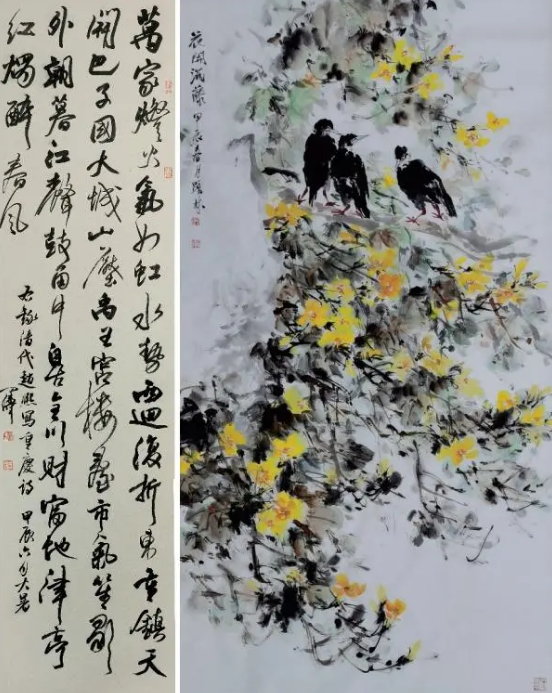 萬家燈火氣如虹水勢西迴復折東重鎮天
開巴子國大城山壓禹王宮樓臺市氣笙歌
外朝暮江聲鼓角中自古全川財富地津亭
紅燭醉春風
右錄清代趙熙寫重慶詩 甲辰六月大暑
風滿藤 甲辰春月